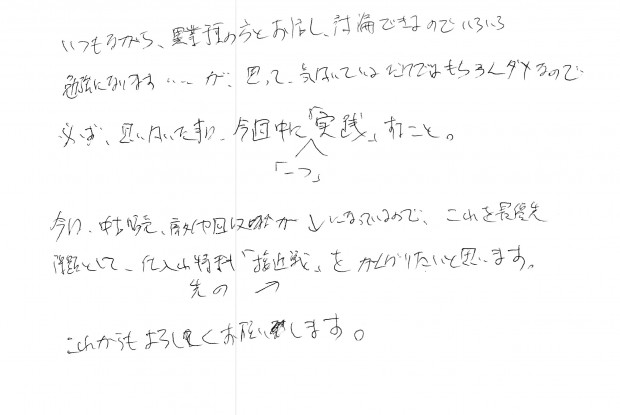 いつもながら、異業種の方とお話し、討論できるのでいろいろ
勉強になります……が、思って、気付いているだけではもちろんダメなので
必ず、思い付いたまま、今回中に「実践」すること。
「一つ」
今、中古販売、 が↓になっているので、これを最優先
課題として、仕入れ 「接近戦」を かんばりたいと思います。
先の
これからもよろしくお願い致します。